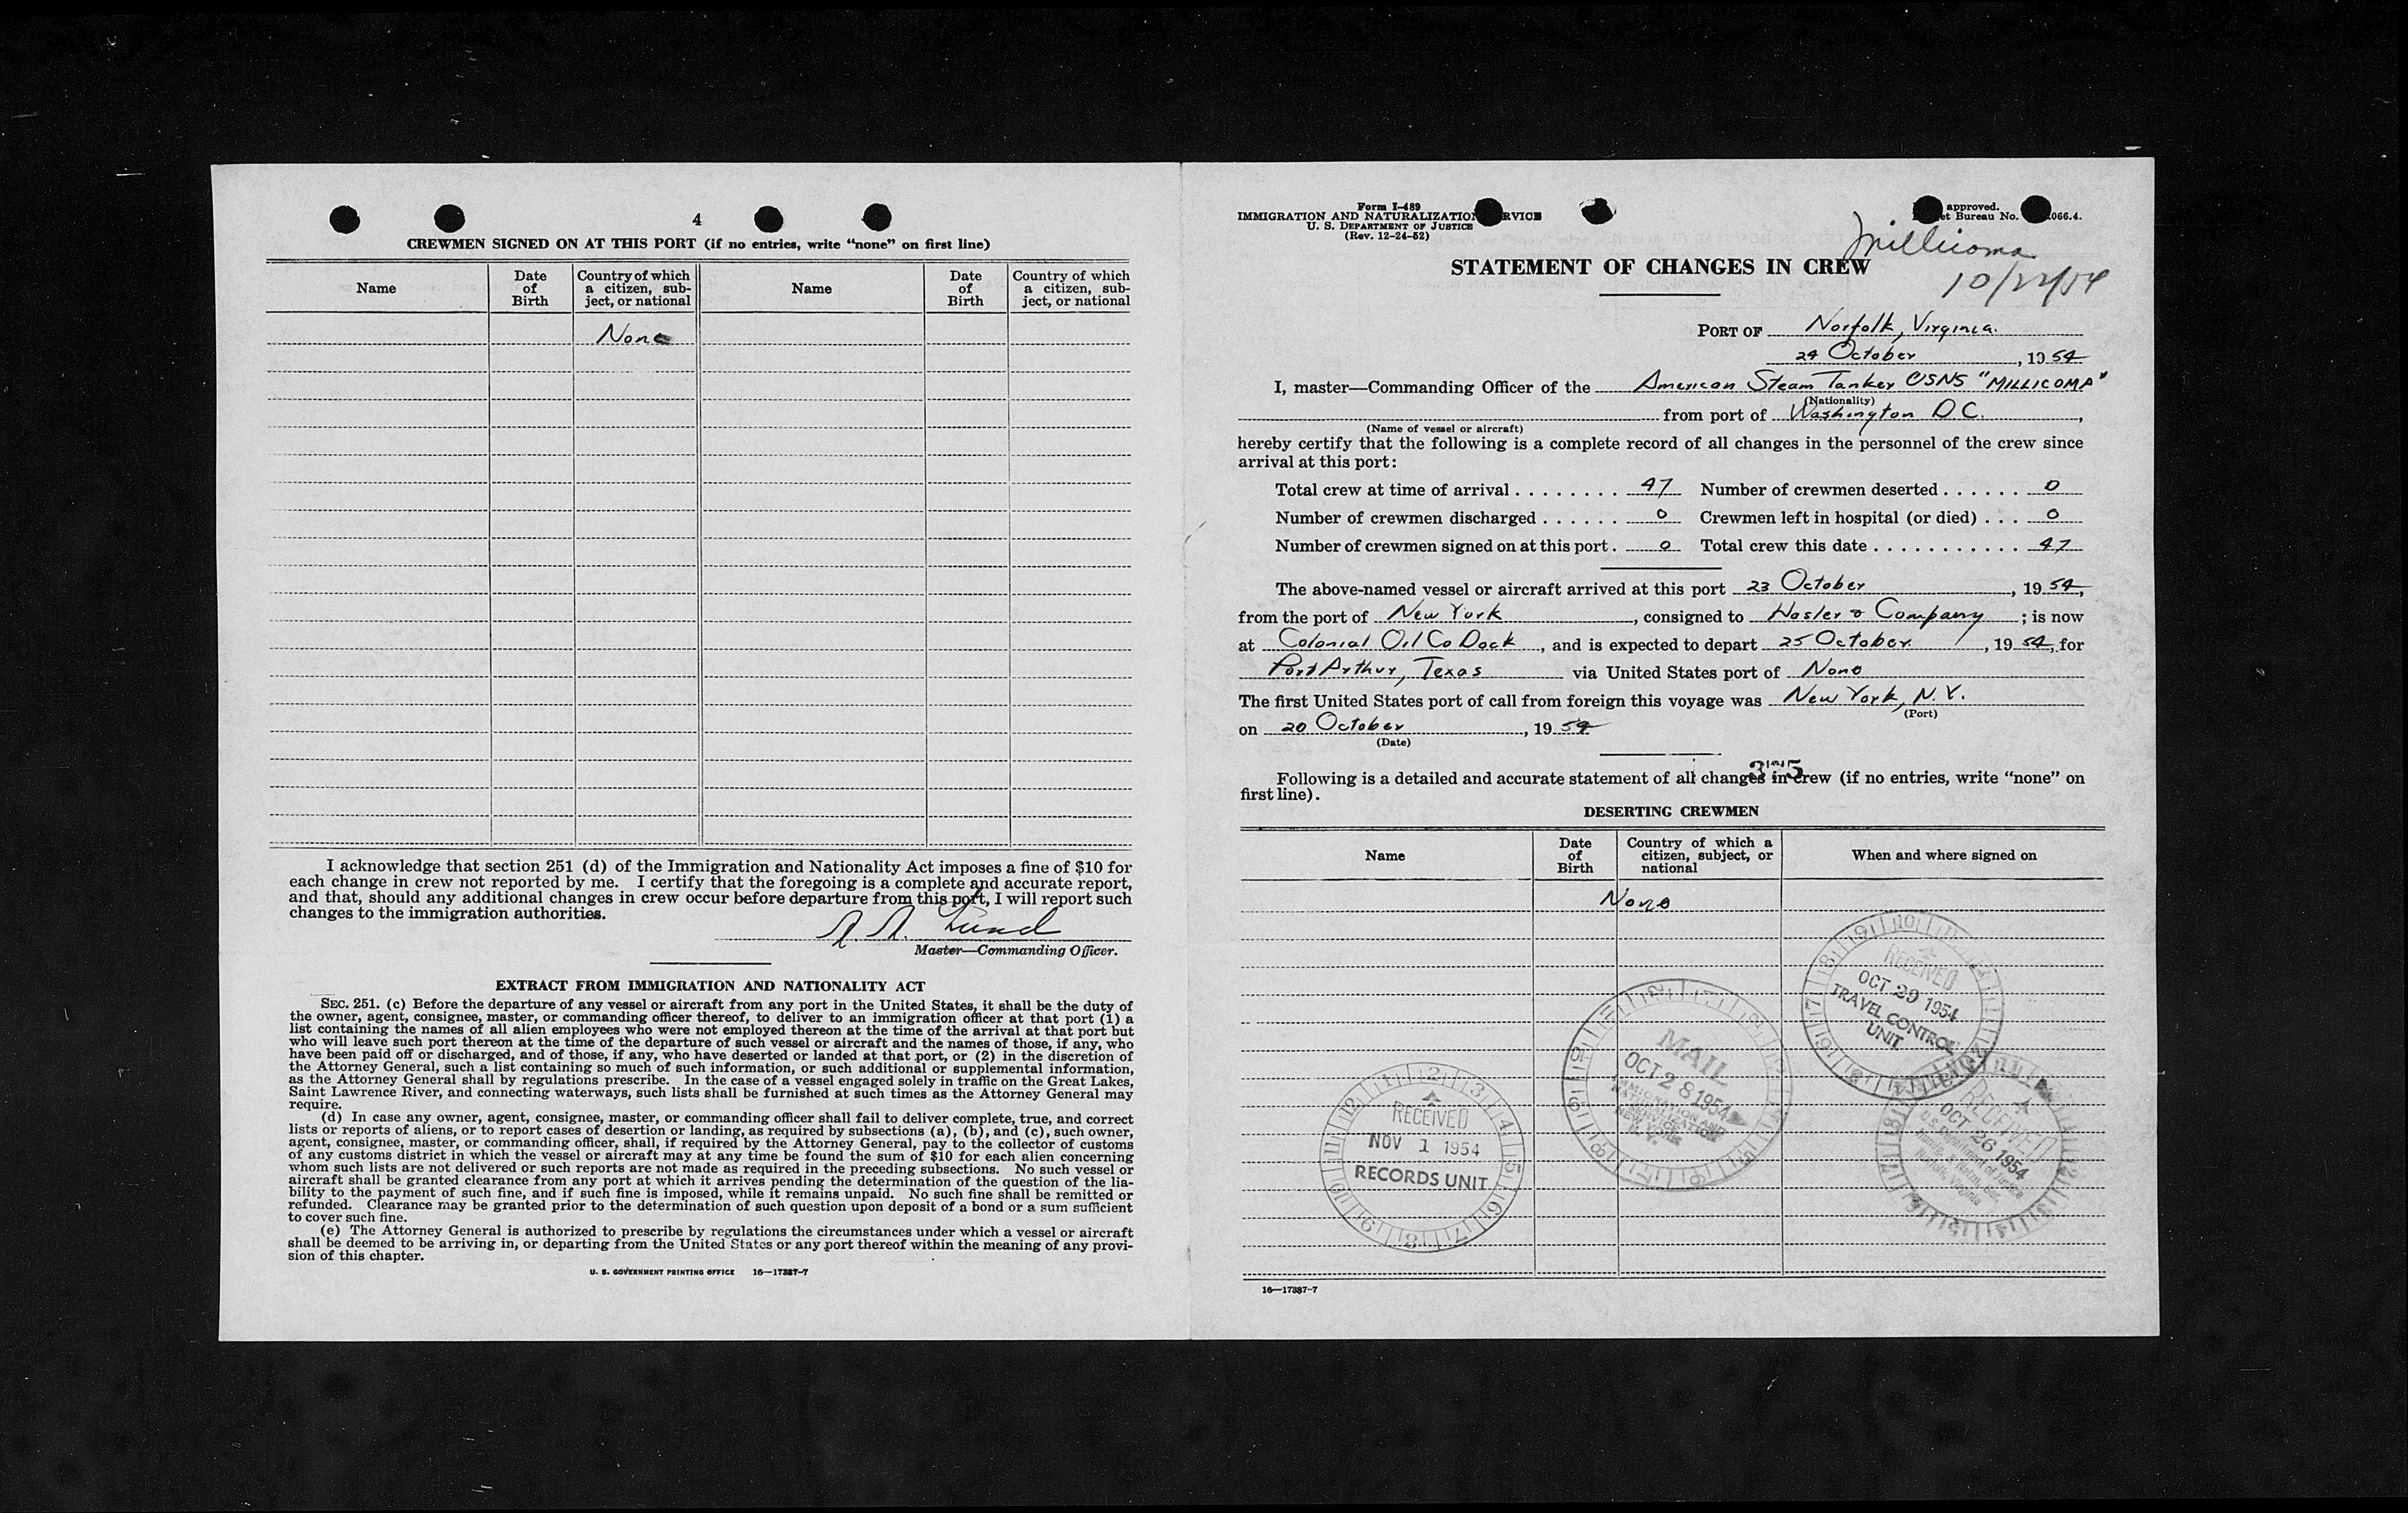 4
CREWMEN SIGNED ON AT THIS PORT (if no entries, write "none" on first line)
Name Date of Birth Country of which a citizen, subject, or national Name Date of Birth Country of which a citizen, subject, or national
None
I acknowledge that section 251 (d) of the Immigration and Nationality Act imposes a fine of $10 for
each change in crew not reported by me. I certify that the foregoing is a complete and accurate report,
and that, should any additional changes in crew occur before departure from this port, I will report such
changes to the immigration authorities.
Lund
Master—Commanding Officer.
EXTRACT FROM IMMIGRATION AND NATIONALITY ACT
SEC. 251. (c) Before the departure of any vessel or aircraft from any port in the United States, it shall be the duty of
the owner, agent, consignee, master, or commanding officer thereof, to deliver to an immigration officer at that port (1) a
list containing the names of all alien employees who were not employed thereon at the time of the arrival at that port but
who will leave such port thereon at the time of the departure of such vessel or aircraft and the names of those, if any, who
have been paid off or discharged, and of those, if any, who have deserted or landed at that port, or (2) in the discretion of
the Attorney General, such a list containing so much of such information, or such additional or supplemental information,
as the Attorney General shall by regulations prescribe. In the case of a vessel engaged solely in traffic on the Great Lakes,
Saint Lawrence River, and connecting waterways, such lists shall be furnished at such times as the Attorney General may
require.
(d) In case any owner, agent, consignee, master, or commanding officer shall fail to deliver complete, true, and correct
lists or reports of aliens, or to report cases of desertion or landing, as required by subsections (a), (b), and (c), such owner,
agent, consignee, master, or commanding officer, shall, if required by the Attorney General, pay to the collector of customs
of any customs district in which the vessel or aircraft may at any time be found the sum of $10 for each alien concerning
whom such lists are not delivered or such reports are not made as required in the preceding subsections. No such vessel or
aircraft shall be granted clearance from any port at which it arrives pending the determination of the question of the lia-
bility to the payment of such fine, and if such fine is imposed, while it remains unpaid. No such fine shall be remitted or
refunded. Clearance may be granted prior to the determination of such question upon deposit of a bond or a sum sufficient
to cover such fine.
(e) The Attorney General is authorized to prescribe by regulations the circumstances under which a vessel or aircraft
shall be deemed to be arriving in, or departing from the United States or any port thereof within the meaning of any provi-
sion of this chapter.
U. S. GOVERNMENT PRINTING OFFICE 16—17387-7
Form I-489
IMMIGRATION AND NATURALIZATION RVICE
U. S. DEPARTMENT OF JUSTICE
(Rev. 12-24-52)
approved.
et Bureau No. 066.4.
Millicoma
10/22/54
STATEMENT OF CHANGES IN CREW
PORT OF Norfolk, Virginia.
24 October, 1954
I, master—Commanding Officer of the American Steam Tanker USNS "MILLICOMA"
(Nationality)
from port of Washington D.C.,
(Name of vessel or aircraft)
hereby certify that the following is a complete record of all changes in the personnel of the crew since
arrival at this port:
Total crew at time of arrival ........ 47 Number of crewmen deserted ...... 0
Number of crewmen discharged ...... 0 Crewmen left in hospital (or died) ... 0
Number of crewmen signed on at this port. 0 Total crew this date ............ 47
The above-named vessel or aircraft arrived at this port 23 October, 1954,
from the port of New York, consigned to Hasler & Company; is now
at Colonial Oil Co Dock, and is expected to depart 25 October, 1954, for
Port Arthur, Texas via United States port of None
The first United States port of call from foreign this voyage was New York, N.Y.
(Port)
on 20 October, 1954
(Date)
Following is a detailed and accurate statement of all changes in crew (if no entries, write "none" on
first line).
DESERTING CREWMEN
Name Date of Birth Country of which a citizen, subject, or national When and where signed on
None
RECEIVED
OCT 29 1954
TRAVEL CONTROL
UNIT
MAIL
OCT 28 1954
IMMIGRATION AND
NATURALIZATION
SERVICE
NEW YORK,
N. Y.
RECEIVED
OCT 26 1954
U. S. Department of Justice
Norfolk, Virginia
RECEIVED
NOV 1 1954
RECORDS UNIT
16—17387-7